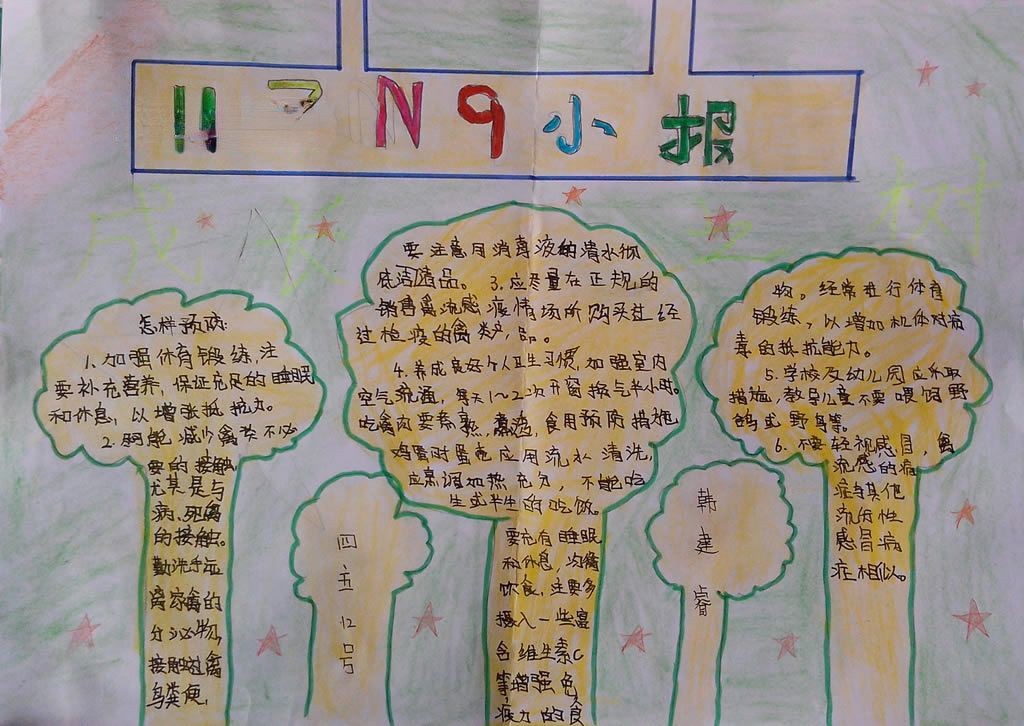 H7N9小报
怎样预防:
1.加强体育锻练,注
要补充营养,保证充足的睡眠
和休息,以增张抵抗力。
2.尽能减少禽类不必
要的接触,
尤其是与
病、死禽
的接触。
勤洗手远
离家禽的
分泌物,
接触过禽
鸟粪便,
四五12号
要注意用消毒液纳清水彻
底洁
品。3.应尽量在正规的
销售禽流感疫情场所购买过经
过检疫的禽类产品。
4.养成良好个人卫生习惯,加强室内
空气流通,每天1~2次开窗换气半小时。
吃禽肉要煮熟,煮沸,食用预防措施
鸡蛋时蛋壳应用流水清洗,
应烹调加热充分,不能吃
生或半生的吃饭。
要充有睡眠
和休息,均衡
饮食,注要多
摄入一些富
含维生素C
等增强免
疫力的食
韩建睿
物。经常进行体育
锻练,以增加机体对病
毒的抵抗能力。
5.学校及幼儿园应采取
措施,教导儿童不要喂饲野
鸽或野鸟等。
6.不要轻视感冒,禽
流感的病
症与其他
流行性
感冒病
症相似。